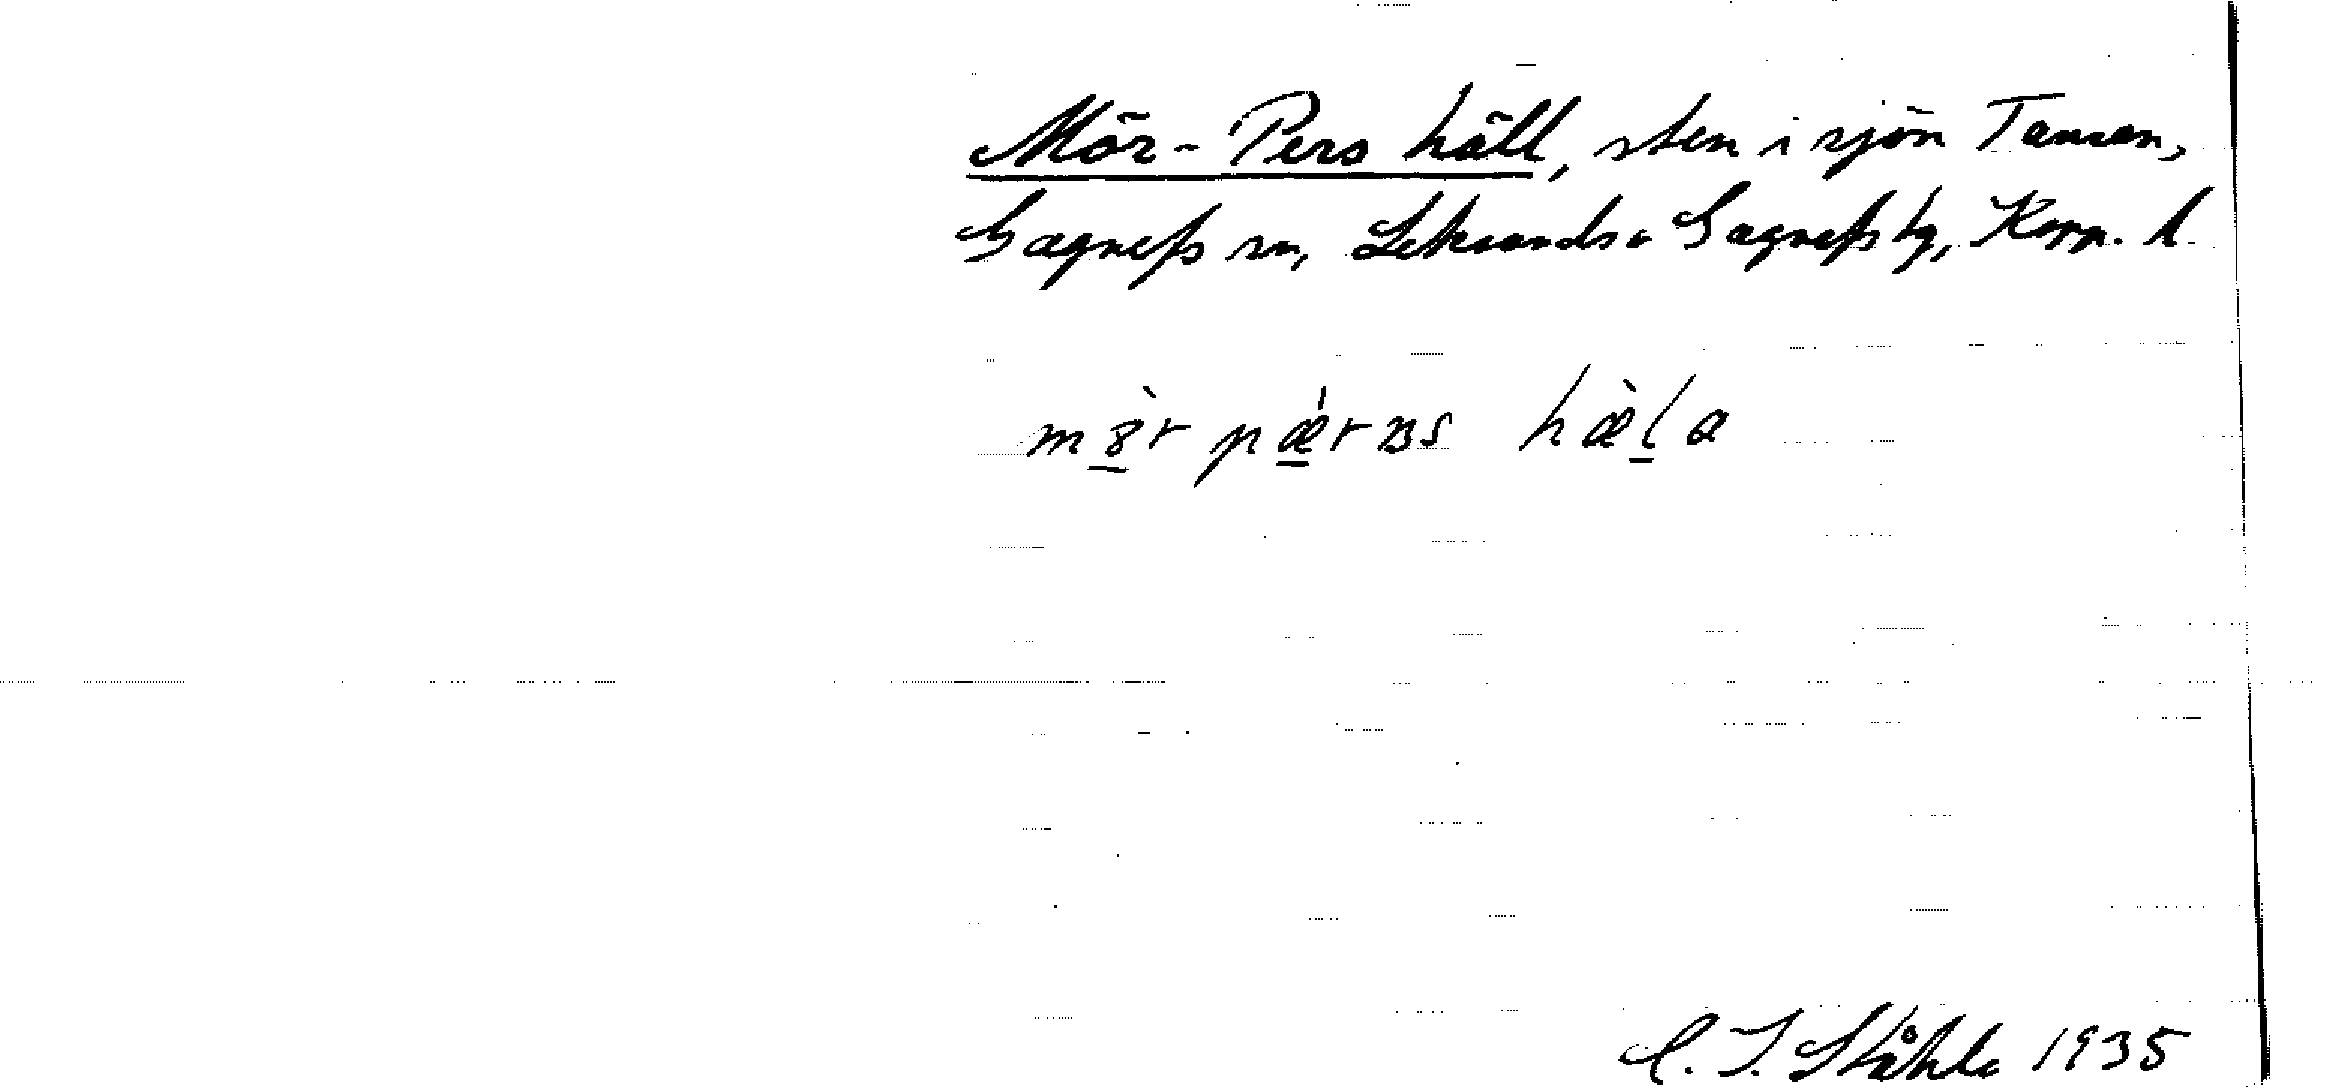 Mör-Pers häll, sten i sjön Tansen,
Gagnefs sn, Leksands o Gagnefs tg, Kopp. l.
m8̲̀r pǽ̲rʙs hæ̀l̲a
C. I. Ståhle 1935